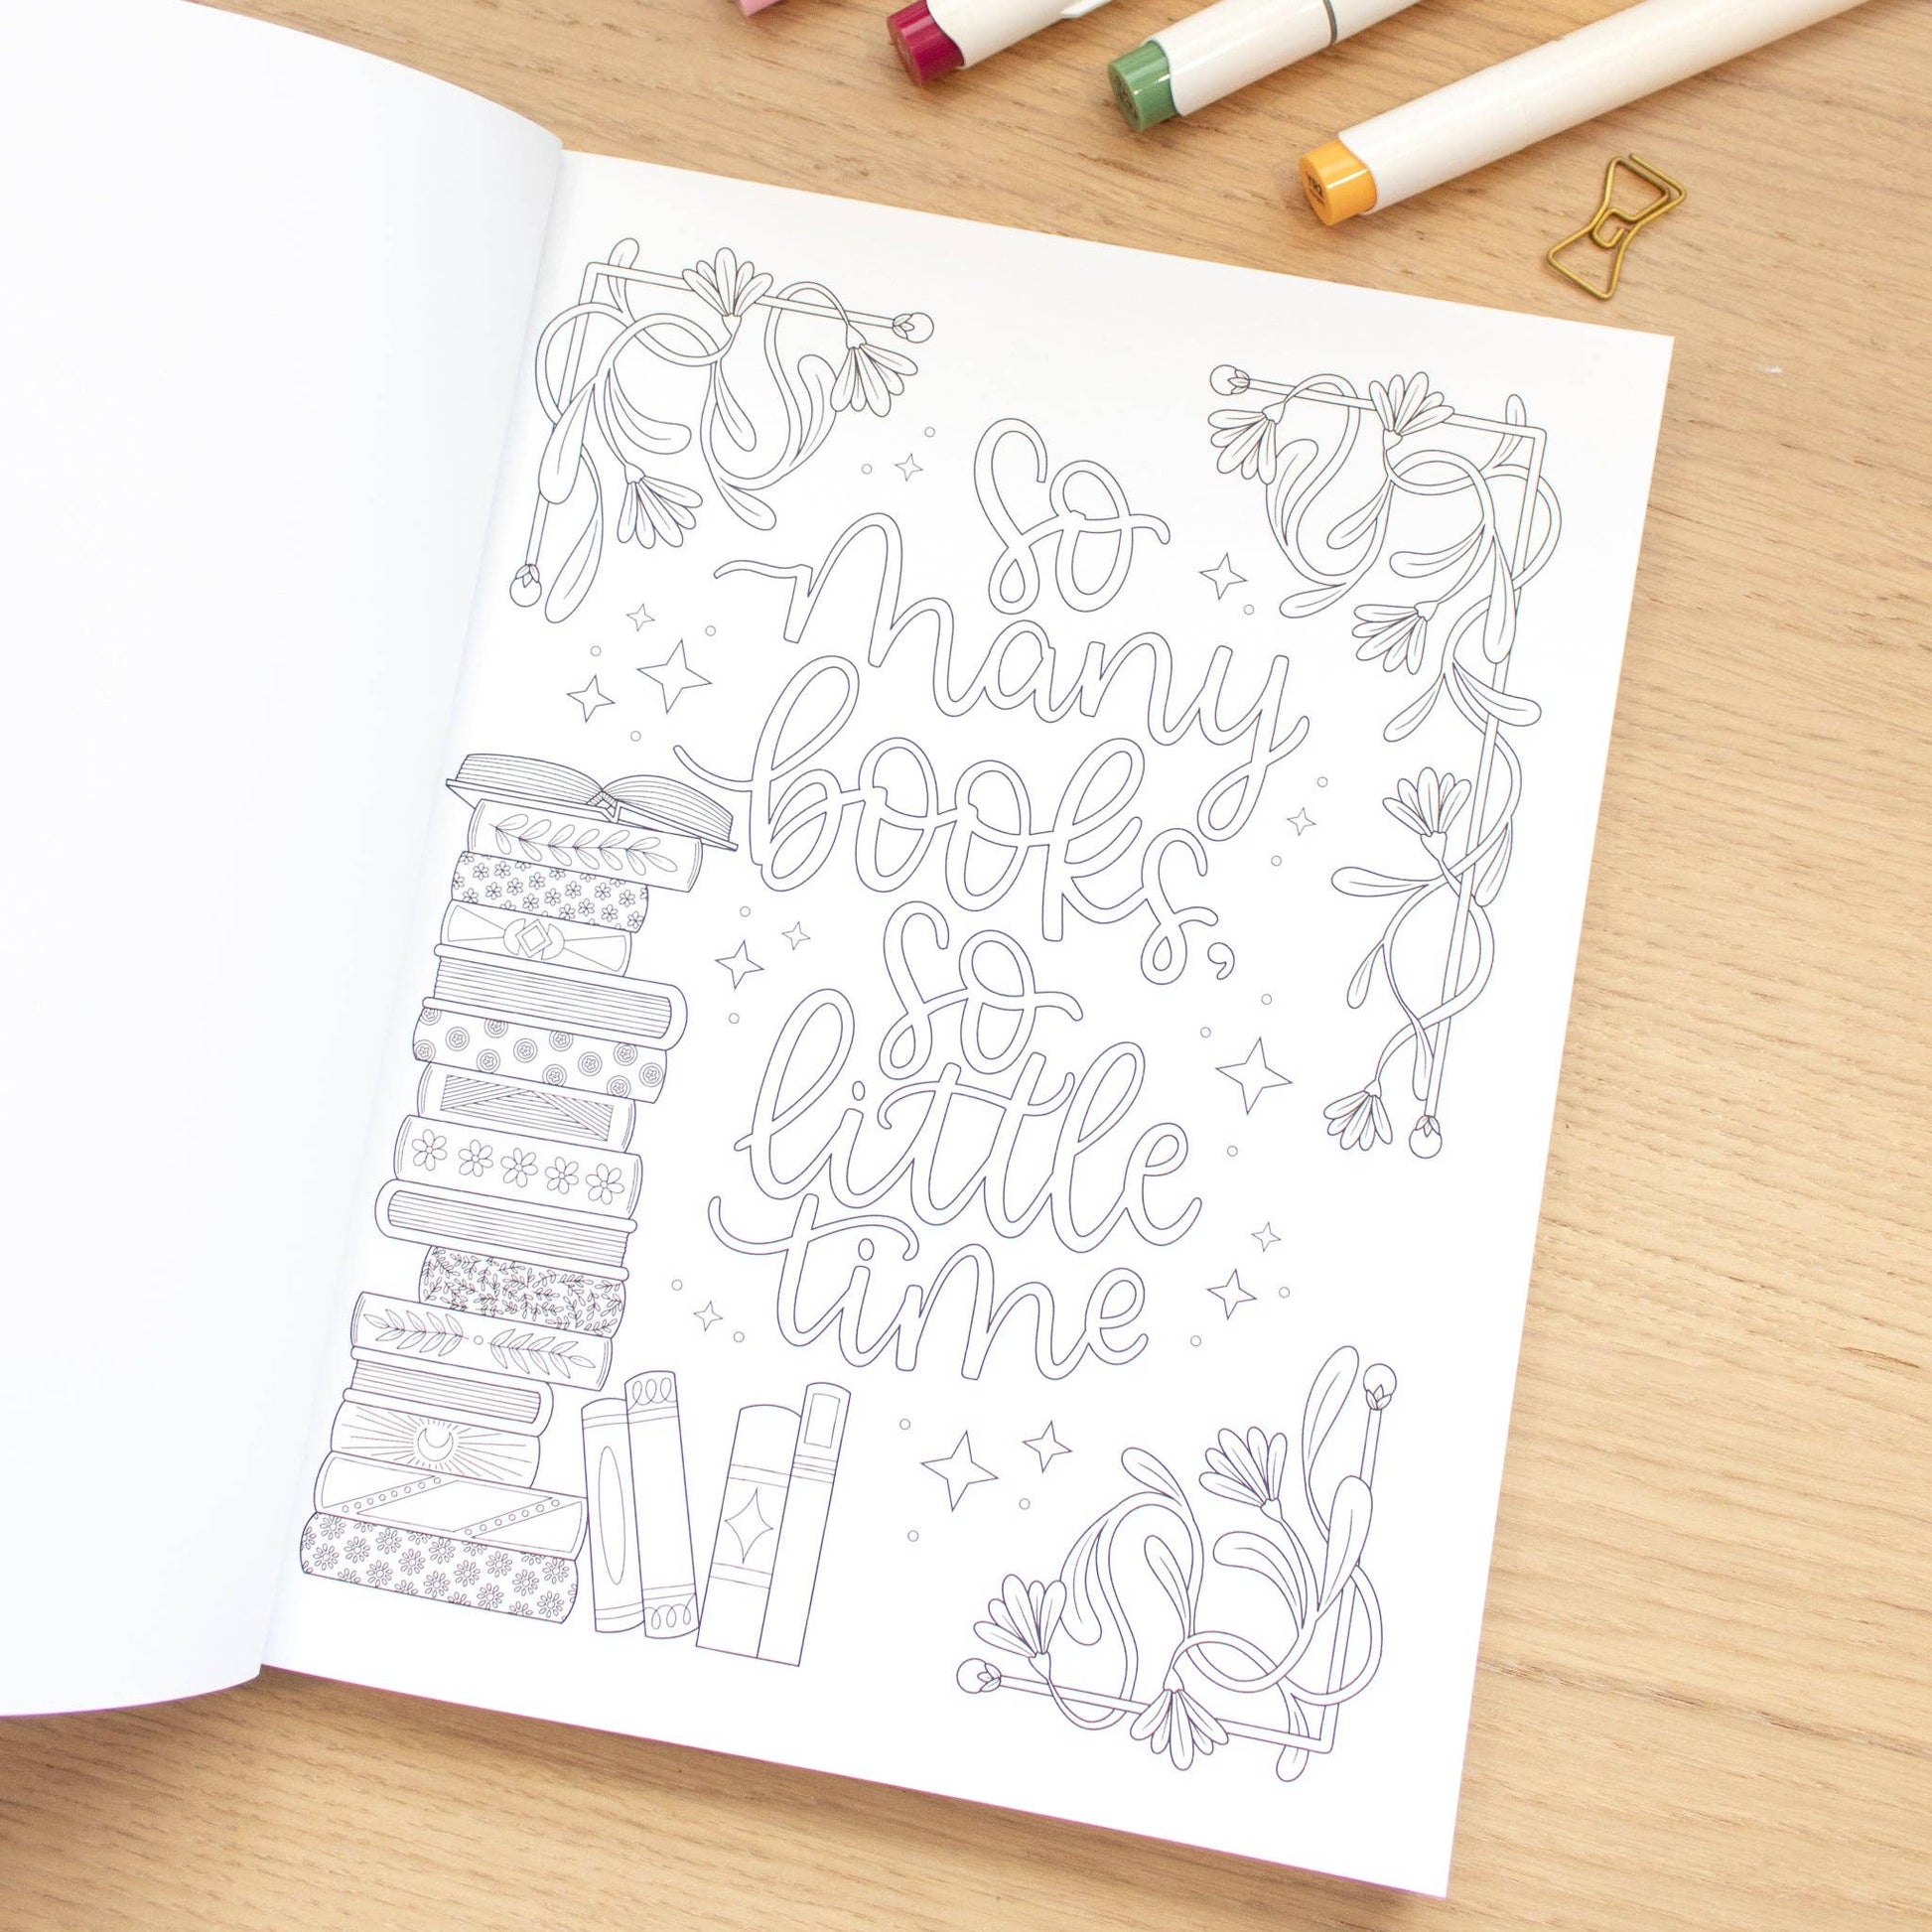 so
many
books,
so
little
time